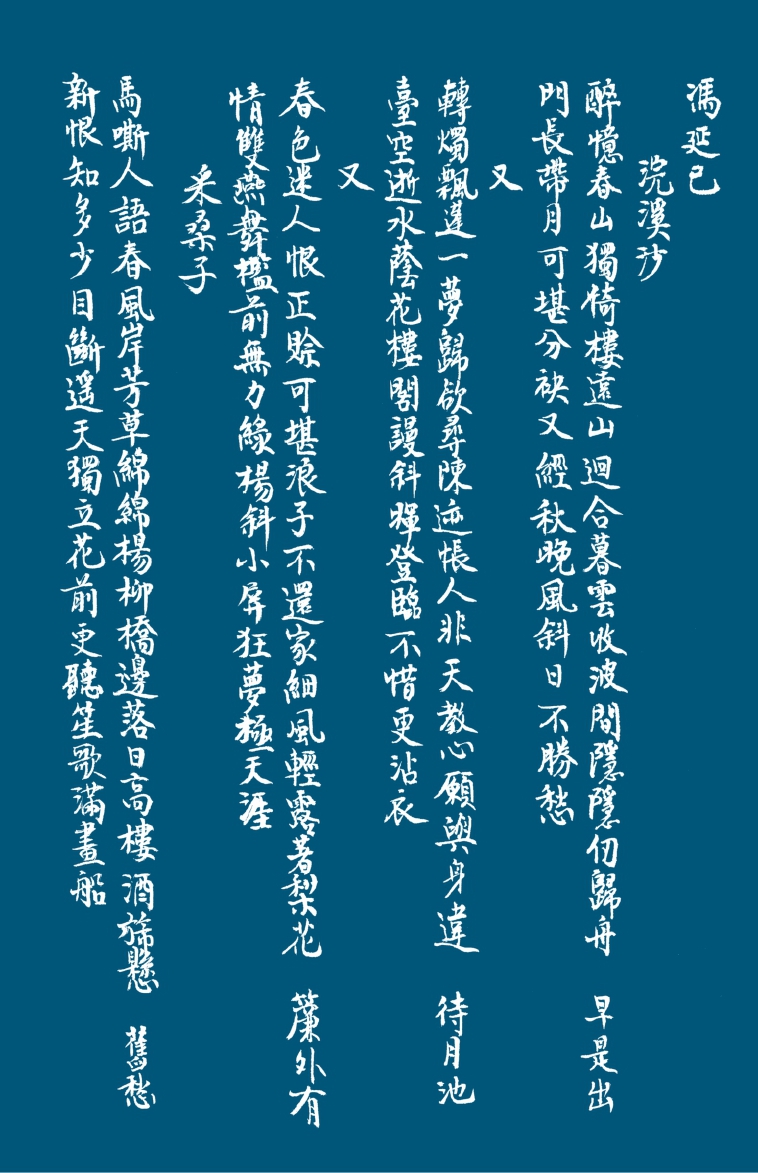 馮延巳
浣溪沙
醉憶春山獨倚樓遠山迴合暮雲收波間隱隱仞歸舟　早是出
門長帶月可堪分袂又經秋晚風斜日不勝愁
又
轉燭飄蓬一夢歸欲尋陳迹悵人非天教心願與身違　待月池
臺空逝水蔭花樓閣謾斜暉登臨不惜更沾衣
又
春色迷人恨正賒可堪浪子不還家細風輕露著梨花　簾外有
情雙燕舞檻前無力綠楊斜小屏狂夢極天涯
采桑子
馬嘶人語春風岸芳草綿綿楊柳橋邊落日高樓酒旆懸　舊愁
新恨知多少目斷遥天獨立花前更聽笙歌滿畫船